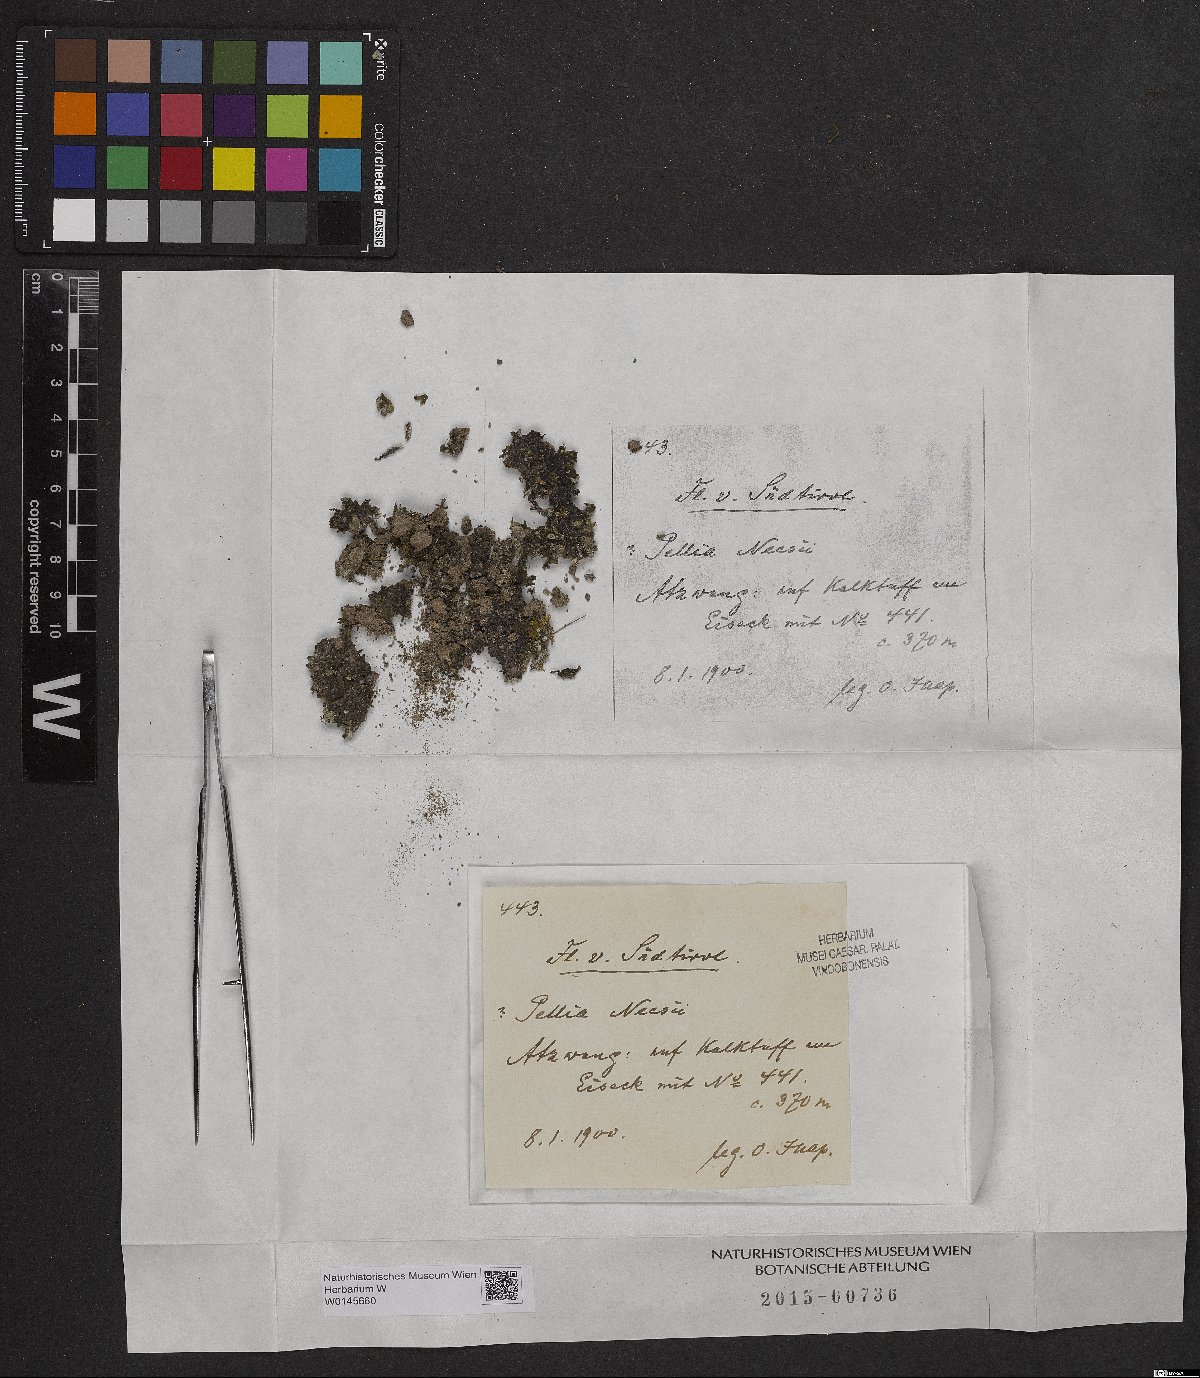 x-rite
colorchecker CLASSIC
cm 0 1 2 3 4 5 6 7 8 9 10
copyright reserved
W
43.
Fl. v. Südtirol.
? Pellia Neesii
Atzwang: auf Kalktuff am
Eisack mit No 441.
c. 370 m
8.1.1900.
leg. O.
443.
Fl. v. Südtirol.
? Pellia Neesii
Atzwang: auf Kalktuff am
Eisack mit No 441.
c. 370 m
8.1.1900.
leg. O.
HERBARIUM
MUSEI CAESAR. PALAT.
VINDOBONENSIS
NATURHISTORISCHES MUSEUM WIEN
BOTANISCHE ABTEILUNG
2015-00736
Naturhistorisches Museum Wien
Herbarium W
W0145660